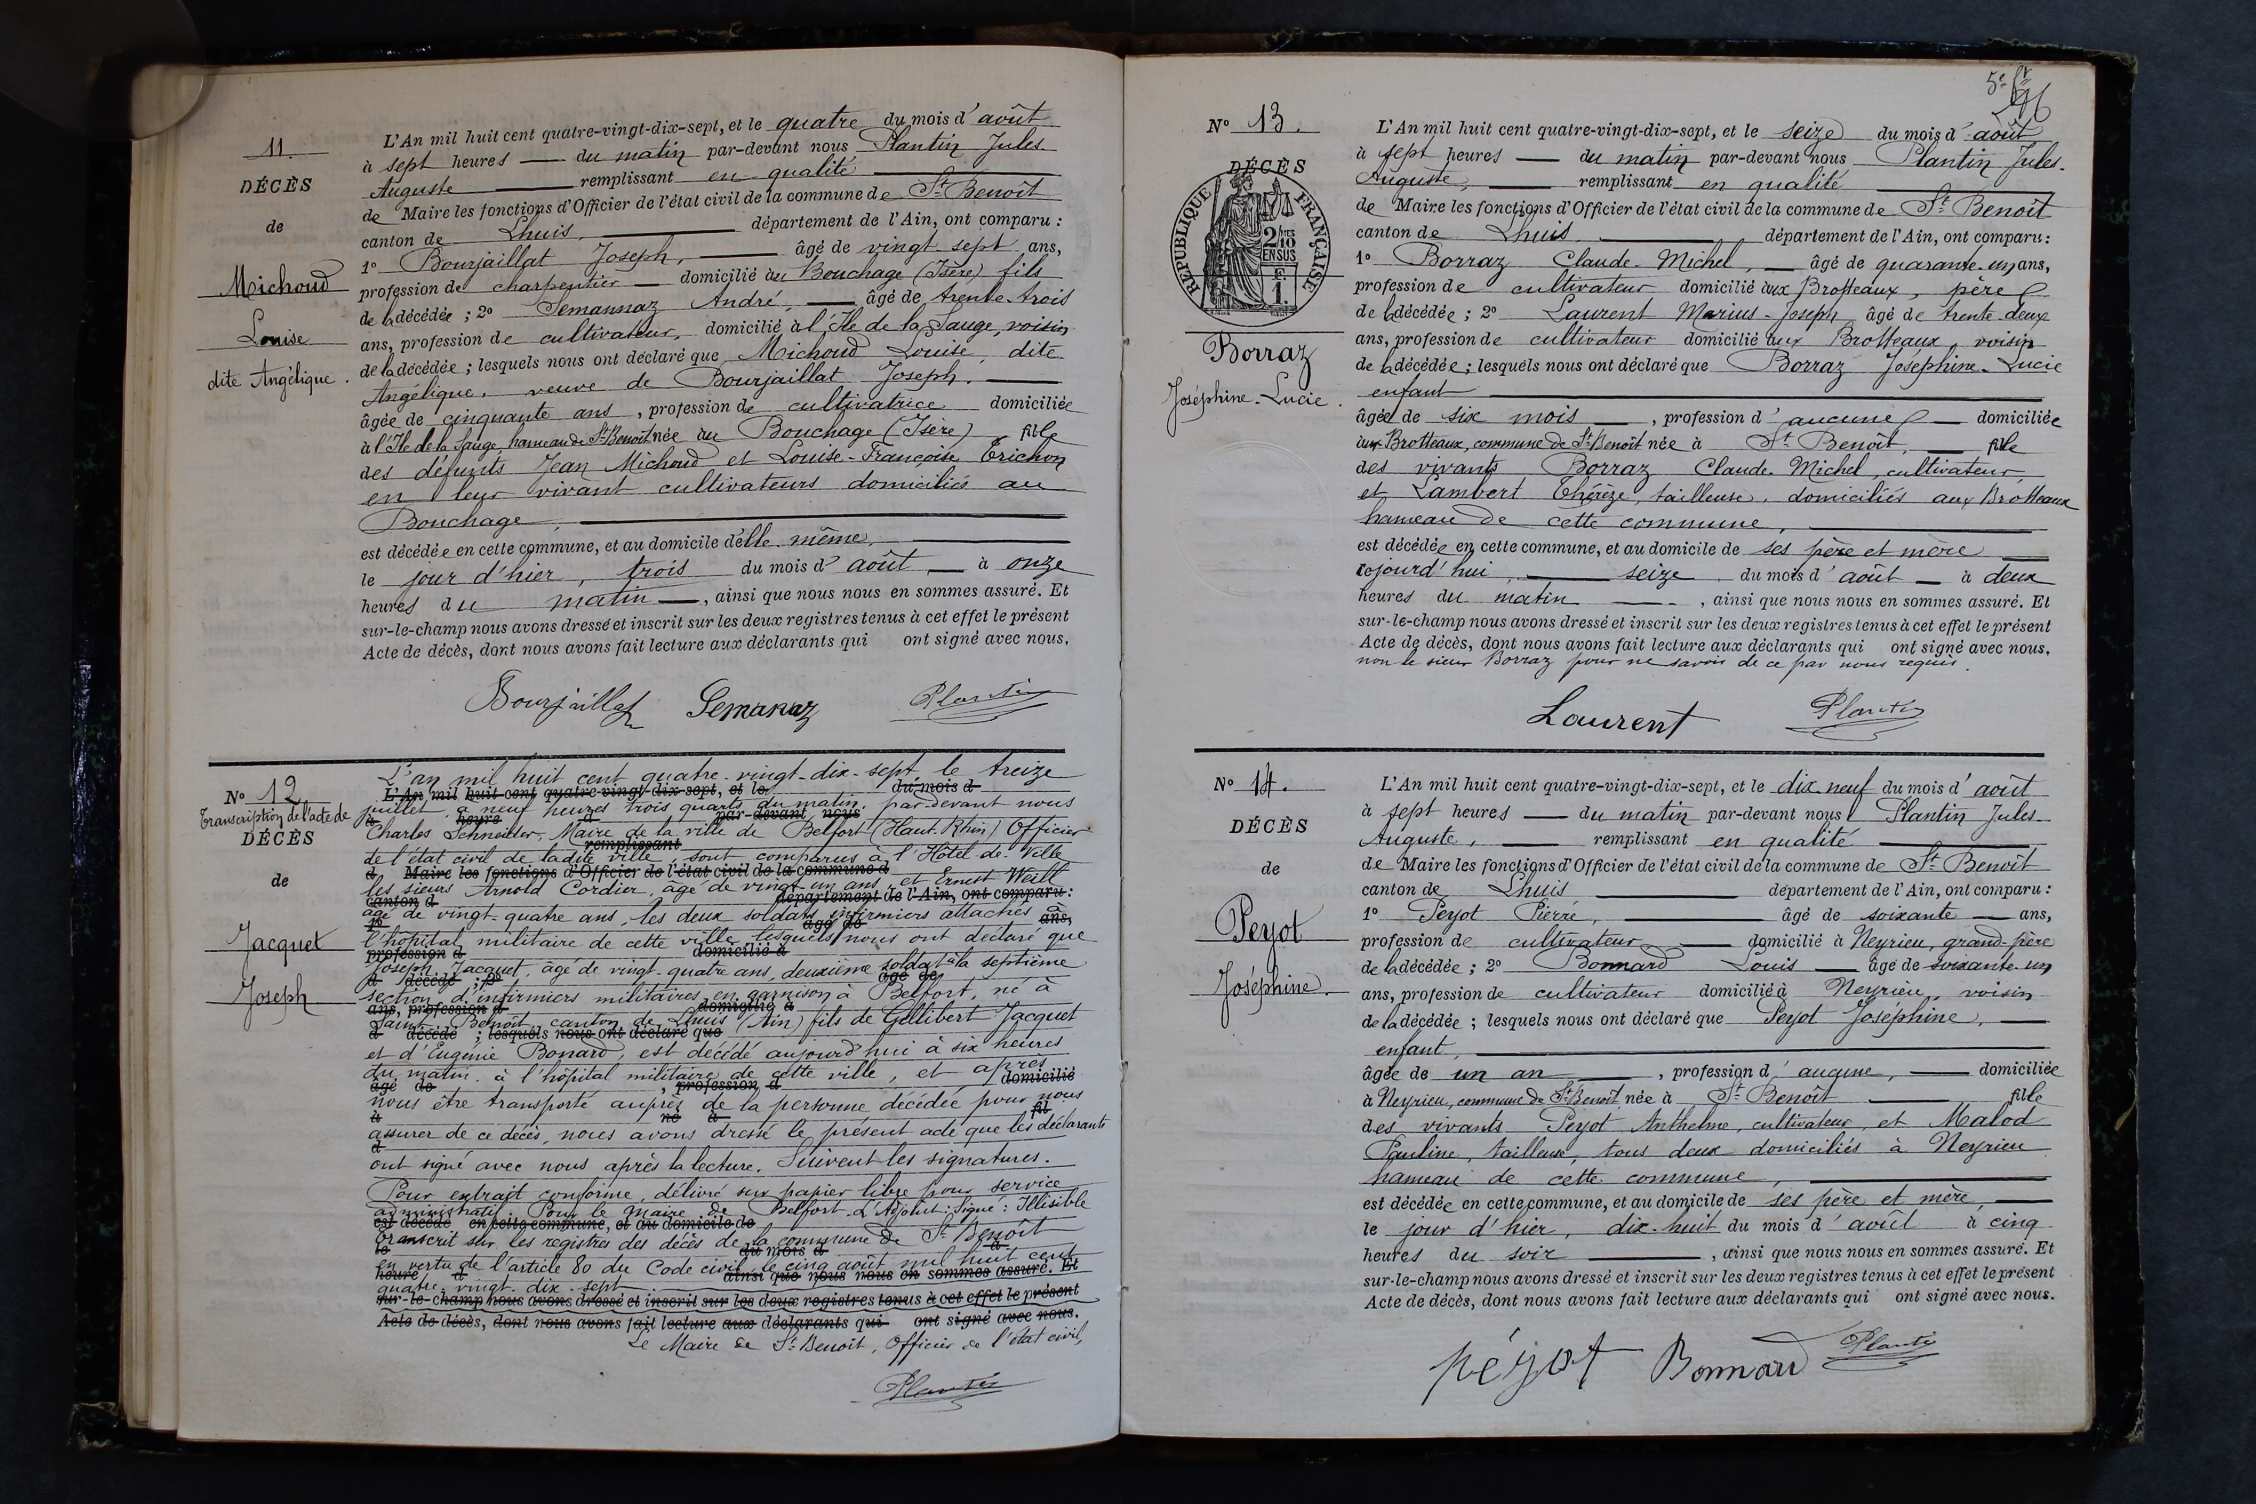 11.
DÉCÈS
de
Michoud
Louise
dite Angélique.
L'An mil huit cent quatre-vingt-dix-sept, et le quatre du mois d'août
à sept heures — du matin par-devant nous Plantin Jules
Auguste — remplissant en qualité
de Maire les fonctions d'Officier de l'état civil de la commune de St Benoît
canton de Lhuis, — département de l'Ain, ont comparu :
1o Bourjaillat Joseph, — âgé de vingt-sept ans,
profession de charpentier — domicilié au Bouchage (Isère) fils
de la décédée ; 2o Semannaz André, — âgé de trente-trois
ans, profession de cultivateur, domicilié à l'Ile de la Sauge, voisin
de la décédée ; lesquels nous ont déclaré que Michoud Louise, dite
Angélique, veuve de Bourjaillat Joseph. —
âgée de cinquante ans, profession de cultivatrice domiciliée
à l'Ile de la Sauge, hameau de St Benoît née au Bouchage (Isère) fille
des défunts Jean Michoud et Louise-Françoise Trichon
en leur vivant cultivateurs domiciliés au
Bouchage, —
est décédée en cette commune, et au domicile d'elle-même, —
le jour d'hier, trois du mois d'août, — à onze
heures du matin —, ainsi que nous nous en sommes assuré. Et
sur-le-champ nous avons dressé et inscrit sur les deux registres tenus à cet effet le présent
Acte de décès, dont nous avons fait lecture aux déclarants qui ont signé avec nous.
Bourjaillat Semanaz Plantin
No 12
Transcription de l'acte de
DÉCÈS
de
Jacquet
Joseph
L'an mil huit cent quatre-vingt-dix-sept le treize
L'An mil huit cent quatre-vingt-dix-sept, et le du mois d
juillet à neuf heures trois quarts du matin, par-devant nous
à heure d par-devant nous
Charles Schneider, Maire de la ville de Belfort (Haut-Rhin) Officier
remplissant
de l'état civil de ladite ville, sont comparus à l'Hôtel-de-Ville
d Maire les fonctions d'Officier de l'état civil de la commune d
les sieurs Arnold Cordier, âgé de vingt-un ans, et Ernest Weill
canton d département de l'Ain, ont comparu :
âgé de vingt-quatre ans, les deux soldats infirmiers attachés à
1o âgé de ans,
l'hôpital militaire de cette ville lesquels nous ont déclaré que
profession d domicilié à
Joseph Jacquet, âgé de vingt-quatre ans, deuxième soldat à la septième
d décédé ; 2o âgé de
section d'infirmiers militaires en garnison à Belfort, né à
ans, profession d domicilié à
Saint-Benoît, canton de Lhuis (Ain) fils de Gellibert Jacquet
d décédé ; lesquels nous ont déclaré que
et d'Eugénie Bonard, est décédé aujourd'hui à six heures
du matin à l'hôpital militaire de cette ville, et après
âgé de , profession d domicilié
nous être transporté auprès de la personne décédée pour nous
à né à fil
assurer de ce décès, nous avons dressé le présent acte que les déclarants
d
ont signé avec nous après la lecture. Suivent les signatures.
Pour extrait conforme, délivré sur papier libre pour service
administratif. Pour le Maire de Belfort. L'Adjoint : Signé : Illisible
est décédé en cette commune, et au domicile de
Transcrit sur les registres des décès de la commune de St Benoît
le du mois d à
en vertu de l'article 80 du Code civil, le cinq août mil huit cent
heure d ainsi que nous nous en sommes assuré. Et
quatre-vingt-dix-sept
sur-le-champ nous avons dressé et inscrit sur les deux registres tenus à cet effet le présent
Acte de décès, dont nous avons fait lecture aux déclarants qui ont signé avec nous.
Le Maire de St Benoît, Officier de l'état civil,
Plantin
5e
No 13.
DÉCÈS
RÉPUBLIQUE FRANÇAISE
2/10 EN SUS
Borraz
Joséphine-Lucie.
L'An mil huit cent quatre-vingt-dix-sept, et le seize du mois d'août
à sept heures — du matin par-devant nous Plantin Jules-
Auguste, — remplissant en qualité
de Maire les fonctions d'Officier de l'état civil de la commune de St Benoît
canton de Lhuis — département de l'Ain, ont comparu :
1o Borraz Claude-Michel, — âgé de quarante-un ans,
profession de cultivateur domicilié aux Brotteaux, père
de la décédée ; 2o Laurent Marius-Joseph âgé de trente-deux
ans, profession de cultivateur domicilié aux Brotteaux, voisin
de la décédée ; lesquels nous ont déclaré que Borraz Joséphine-Lucie
enfant —
âgée de six mois —, profession d'aucune — domiciliée
aux Brotteaux, commune de St Benoît née à St Benoît, — fille
des vivants Borraz Claude-Michel, cultivateur,
et Lambert Thérèze, tailleuse, domiciliés aux Brotteaux
hameau de cette commune, —
est décédée en cette commune, et au domicile de ses père et mère —
cejourd'hui, — seize du mois d'août — à deux
heures du matin —, ainsi que nous nous en sommes assuré. Et
sur-le-champ nous avons dressé et inscrit sur les deux registres tenus à cet effet le présent
Acte de décès, dont nous avons fait lecture aux déclarants qui ont signé avec nous.
non le sieur Borraz pour ne savoir de ce par nous requis.
Laurent Plantin
No 14.
DÉCÈS
de
Peyot
Joséphine.
L'An mil huit cent quatre-vingt-dix-sept, et le dix-neuf du mois d'août
à sept heures — du matin par-devant nous Plantin Jules-
Auguste, — remplissant en qualité
de Maire les fonctions d'Officier de l'état civil de la commune de St Benoît
canton de Lhuis — département de l'Ain, ont comparu :
1o Peyot Pierre, — âgé de soixante — ans,
profession de cultivateur — domicilié à Neyrieu, grand-père
de la décédée ; 2o Bonnard Louis — âgé de soixante-un
ans, profession de cultivateur domicilié à Neyrieu, voisin
de la décédée ; lesquels nous ont déclaré que Peyot Joséphine, —
enfant, —
âgée de un an —, profession d'aucune, — domiciliée
à Neyrieu, commune de St Benoît née à St Benoît — fille
des vivants Peyot Anthelme, cultivateur, et Malod
Pauline, tailleuse, tous deux domiciliés à Neyrieu
hameau de cette commune, —
est décédée en cette commune, et au domicile de ses père et mère, —
le jour d'hier, dix-huit du mois d'août à cinq
heures du soir —, ainsi que nous nous en sommes assuré. Et
sur-le-champ nous avons dressé et inscrit sur les deux registres tenus à cet effet le présent
Acte de décès, dont nous avons fait lecture aux déclarants qui ont signé avec nous.
péyot Bonnard Plantin